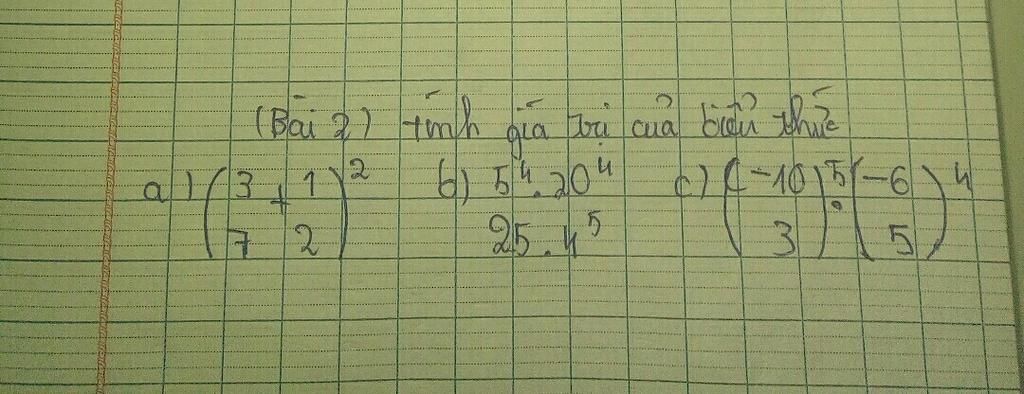 (Bài 2) tính giá trị của biểu thức
a) (3/7 + 1/2)² b) 5⁴.20⁴ / 25.4⁵ c) (-10/3)⁵ . (-6/5)⁴